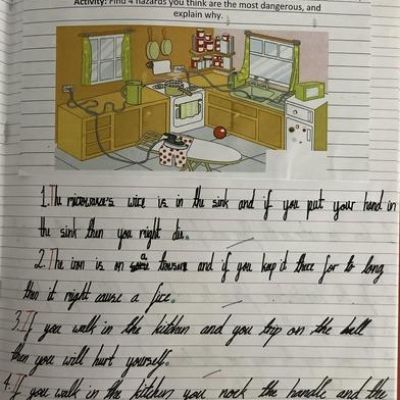 Activity: Find 4 hazards you think are the most dangerous, and
explain why.
1. The microwave's wire is in the sink and if you put your hand in
the sink then you might die.
2. The iron is on some a trousure and if you keep it there for to long
then it might cause a fire.
3. If you walk in the kitchen and you trip on the ball
then you will hurt yourself.
4. If you walk in the kitchen you nock the handle and the